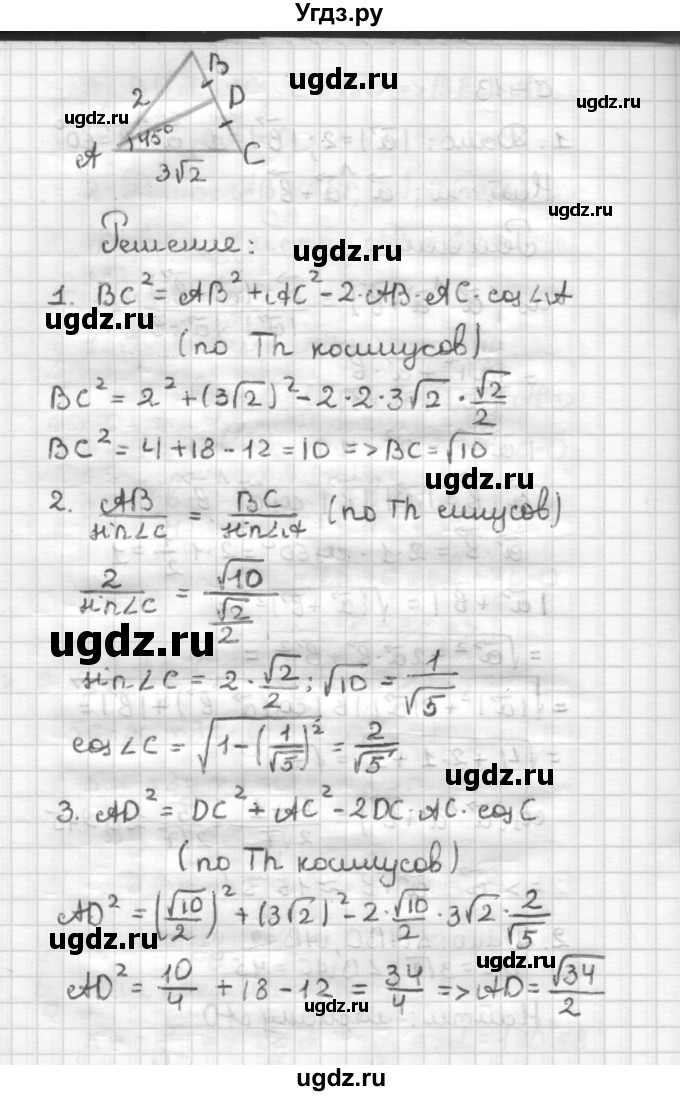 Угдз.ру
B
ugdz.ru
2
D
ugdz.ru
ugdz.ru
45°
A
C
3√2
ugdz.ru
Решение:
ugdz.ru
1. BC² = AB² + AC² - 2·AB·AC·cos∠A
ugdz.ru
(по Th косинусов)
ugdz.ru
BC² = 2² + (3√2)² - 2·2·3√2·√2/2
BC² = 4 + 18 - 12 = 10 => BC = √10
ugdz.ru
2. AB/sin∠C = BC/sin∠A (по Th синусов)
2/sin∠C = √10/(√2/2)
ugdz.ru
ugdz.ru
sin∠C = 2·√2/2 : √10 = 1/√5
cos∠C = √(1-(1/√5)²) = 2/√5
ugdz.ru
3. AD² = DC² + AC² - 2DC·AC·cosC
(по Th косинусов)
ugdz.ru
AD² = (√10/2)² + (3√2)² - 2·√10/2·3√2·2/√5
ugdz.ru
ugdz.ru
AD² = 10/4 + 18 - 12 = 34/4 => AD = √34/2
ugdz.ru
ugdz.ru